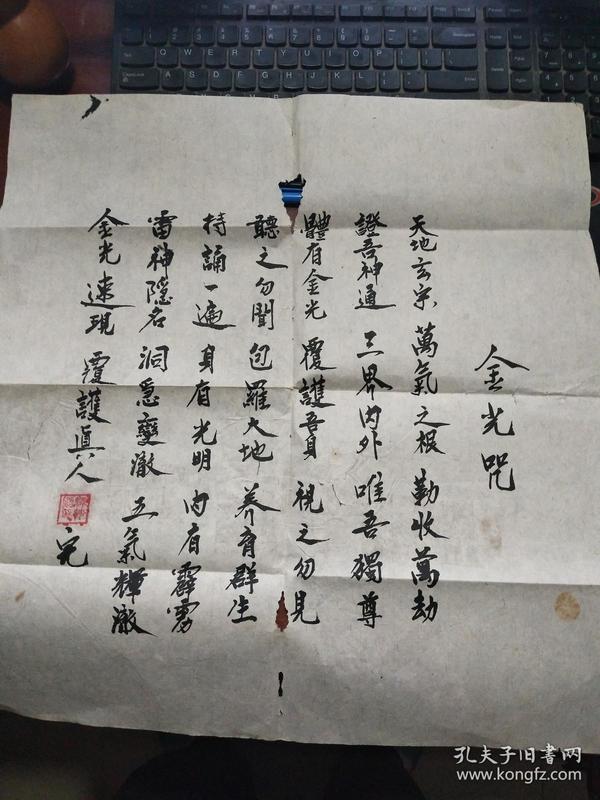 金光咒
天地玄宗 萬氣之根 勤收萬劫
證吾神通 三界內外 唯吾獨尊
體有金光 覆護吾身 視之勿見
聽之勿聞 包羅天地 養育群生
持誦一遍 身有光明 內有霹靂
雷神隱名 洞慧變澈 五氣輝澈
金光速現 覆護真人
完
孔夫子旧书网
www.kongfz.com